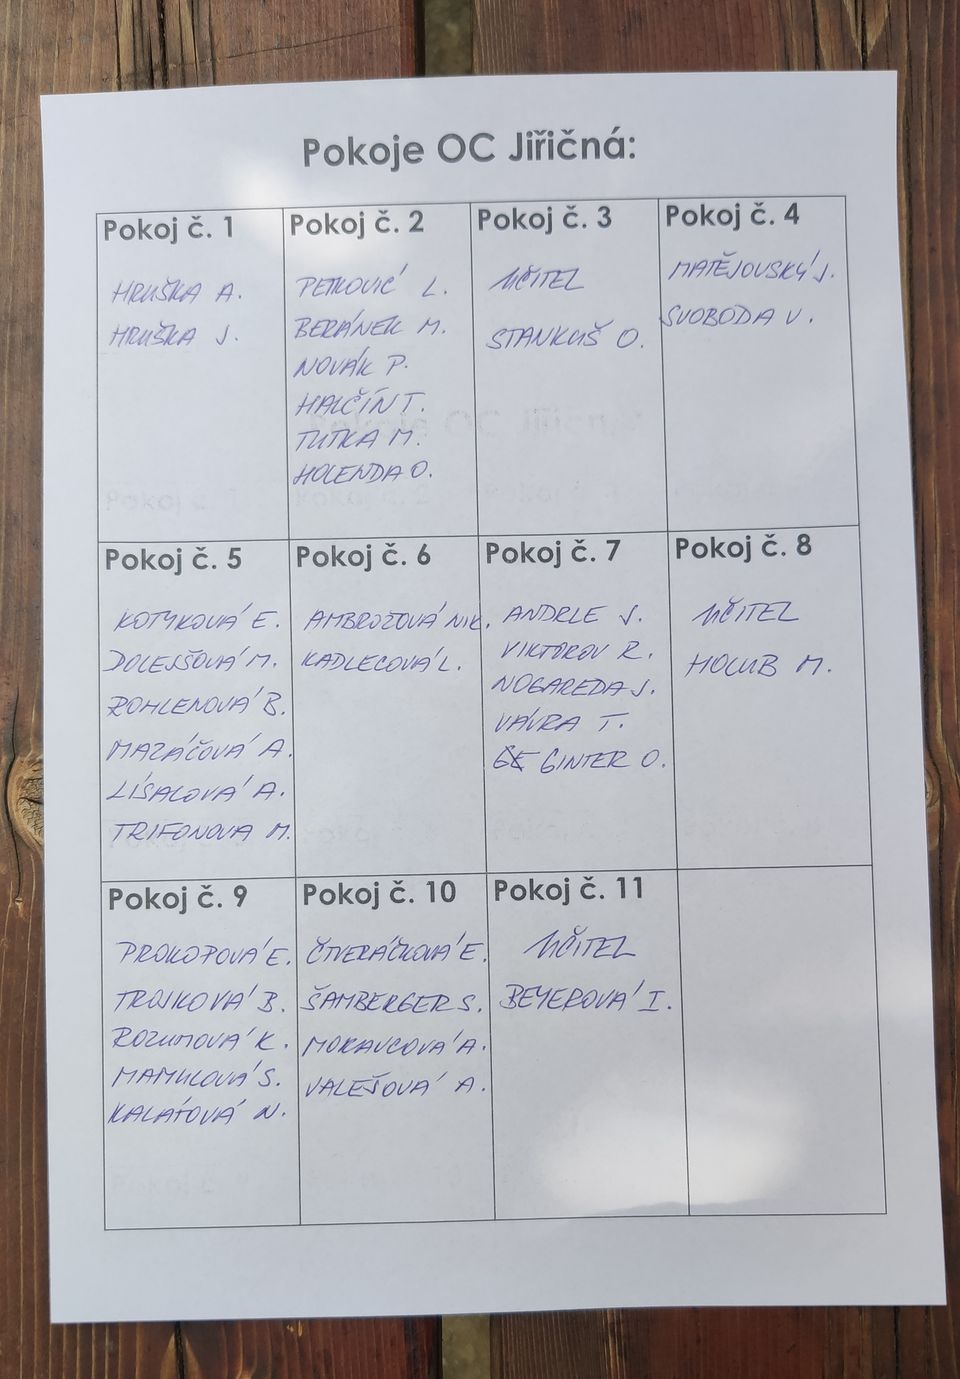 Pokoje OC Jiřičná:
Pokoj č. 1
HRUŠKA A.
HRUŠKA J.
Pokoj č. 2
PETKOVIĆ L.
BERÁNEK M.
NOVÁK P.
HALČÍN T.
TUTKA M.
HOLENDA O.
Pokoj č. 3
UČITEL
STANKUŠ O.
Pokoj č. 4
MATĚJOVSKÝ J.
SVOBODA V.
Pokoj č. 5
KOTYKOVÁ E.
DOLEJŠOVÁ M.
ROHLENOVÁ B.
MAZÁČOVÁ A.
LÍSALOVÁ A.
TRIFONOVA M.
Pokoj č. 6
AMBROŽOVÁ NIK.
KADLECOVÁ L.
Pokoj č. 7
ANDRLE J.
VIKTOROV R.
NOGAREDA J.
VÁVRA T.
GINTER O.
Pokoj č. 8
UČITEL
HOLUB M.
Pokoj č. 9
PROKOPOVÁ E.
TROJKOVÁ B.
ROZUMOVÁ K.
MAMULOVÁ S.
KALAŤOVÁ N.
Pokoj č. 10
ČTVERÁČKOVÁ E.
ŠAMBERGER S.
MORAVCOVÁ A.
VALEŠOVÁ A.
Pokoj č. 11
UČITEL
BEYEROVÁ I.